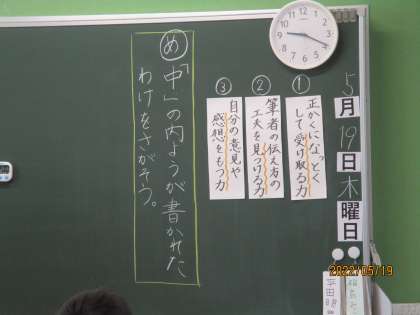 5月19日木曜日
①
正かくに、なっとく
して受け取る力
②
筆者の伝え方の
工夫を見つける力
③
自分の意見や
感想をもつ力
め「中」の内ようが書かれた
わけをさがそう。
2022/05/19